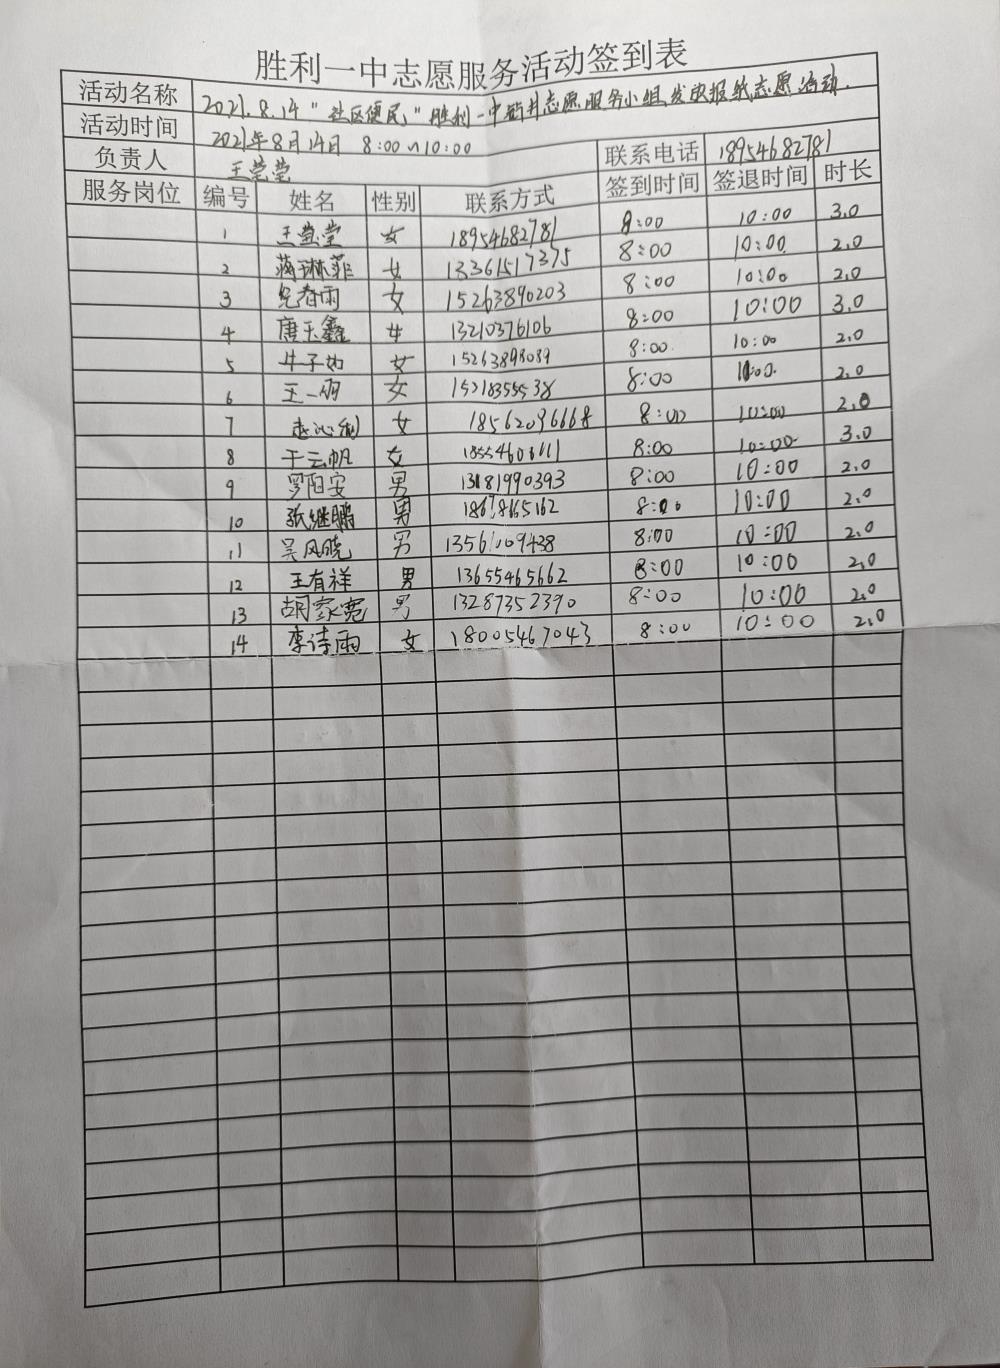 胜利一中志愿服务活动签到表
活动名称 2021.8.14 "社区便民" 胜利一中 志愿服务小组发放报纸志愿活动.
活动时间 2021年8月14日 8:00~10:00
负责人 王莹莹 联系电话 18954682781
服务岗位 编号 姓名 性别 联系方式 签到时间 签退时间 时长
1 王莹莹 女 18954682781 8:00 10:00 3.0
2 蒋琳菲 女 13361517375 8:00 10:00 2.0
3 春雨 女 15263890203 8:00 10:00 2.0
4 唐玉鑫 女 13210376106 8:00 10:00 3.0
5 牛子如 女 8:00 10:00 2.0
6 王一 女 8:00 2.0
7 女 18562096668 8:00 10:00 2.0
8 于云帆 女 8:00 10:00 3.0
9 罗阳安 男 13181990393 8:00 10:00 2.0
10 张继鹏 男 8:00 10:00 2.0
11 吴风晓 男 13561009438 8:00 10:00 2.0
12 王有祥 男 13655465662 8:00 10:00 2.0
13 胡家宽 男 13287352390 8:00 10:00 2.0
14 李诗雨 女 18005467043 8:00 10:00 2.0